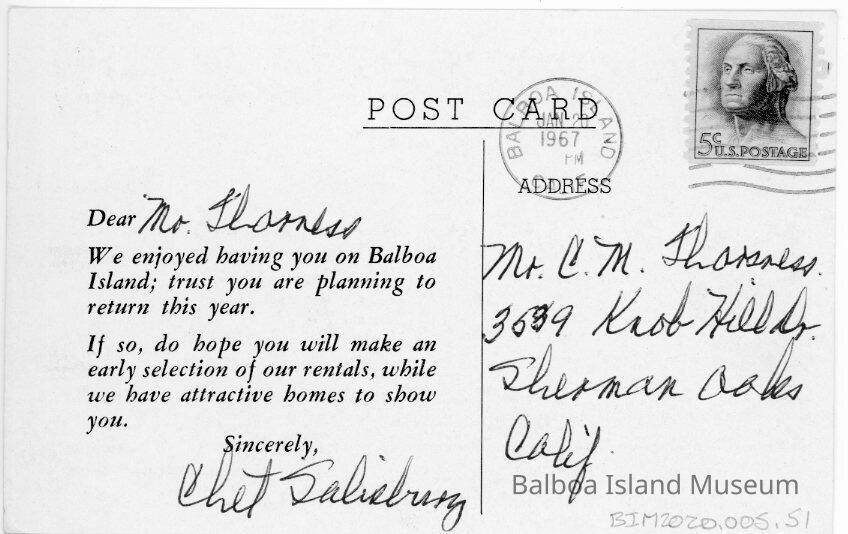 POST CARD
BALBOA ISLAND
JAN 20
1967
PM
5c
U.S.POSTAGE
ADDRESS
Dear Mr. Thorsness
We enjoyed having you on Balboa
Island; trust you are planning to
return this year.
If so, do hope you will make an
early selection of our rentals, while
we have attractive homes to show
you.
Sincerely,
Chet Salisbury
Mr. C. M. Thorsness.
3539 Knob Hill Dr.
Sherman Oaks
Calif.
Balboa Island Museum
BIM2020.005.51